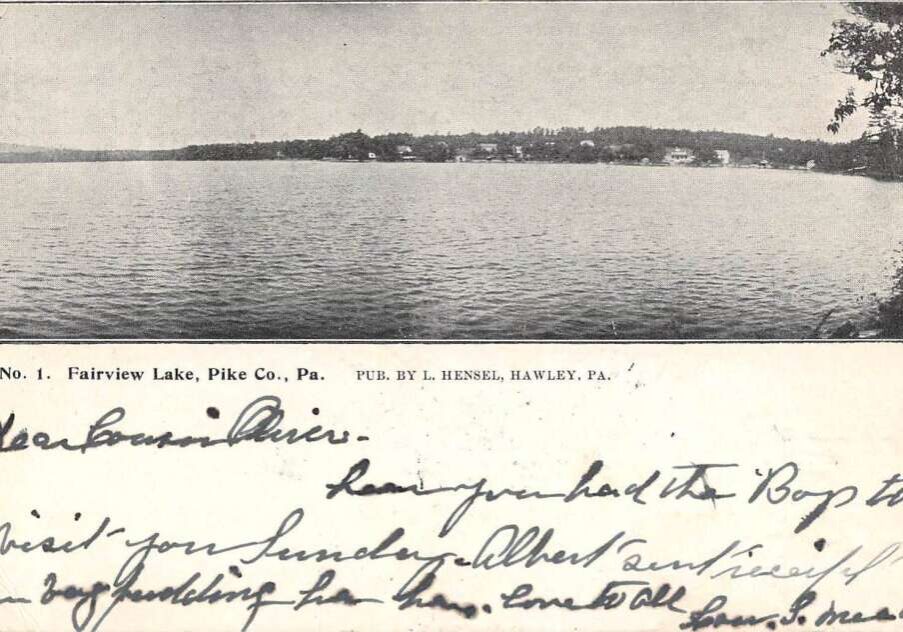 No. 1. Fairview Lake, Pike Co., Pa. PUB. BY L. HENSEL, HAWLEY, PA.
Dear Cousin
hear you had the Boys to
visit you Sunday. Albert sent
pudding love to all